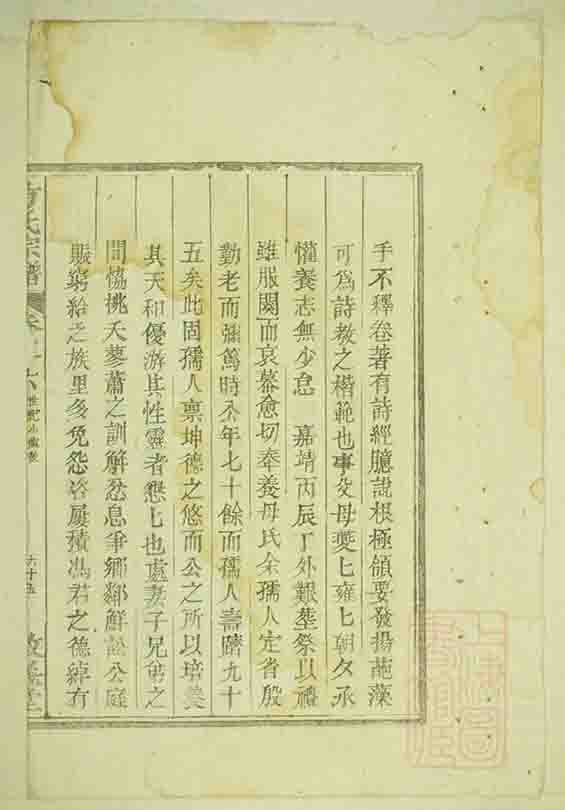 手不釋卷著有詩經臆說根極領要發揚葩藻
可為詩教之楷範也事父母夔七雍七朝夕承
懽養志無少怠 嘉靖丙辰丁外艱塟祭以禮
雖服闋而哀慕愈切奉養母氏余孺人定省殷
勤老而彌篤時公年七十餘而孺人壽躋九十
五矣此固孺人禀坤德之悠而公之所以培養
其天和優游其性靈者懇七也處妻子兄弟之
間恊桃夭蓼蕭之訓解忿息爭鄉鄰鮮訟公庭
賑窮給乏族里多免怨咨屢積馮君之德綽有
方氏宗譜 卷
六十五